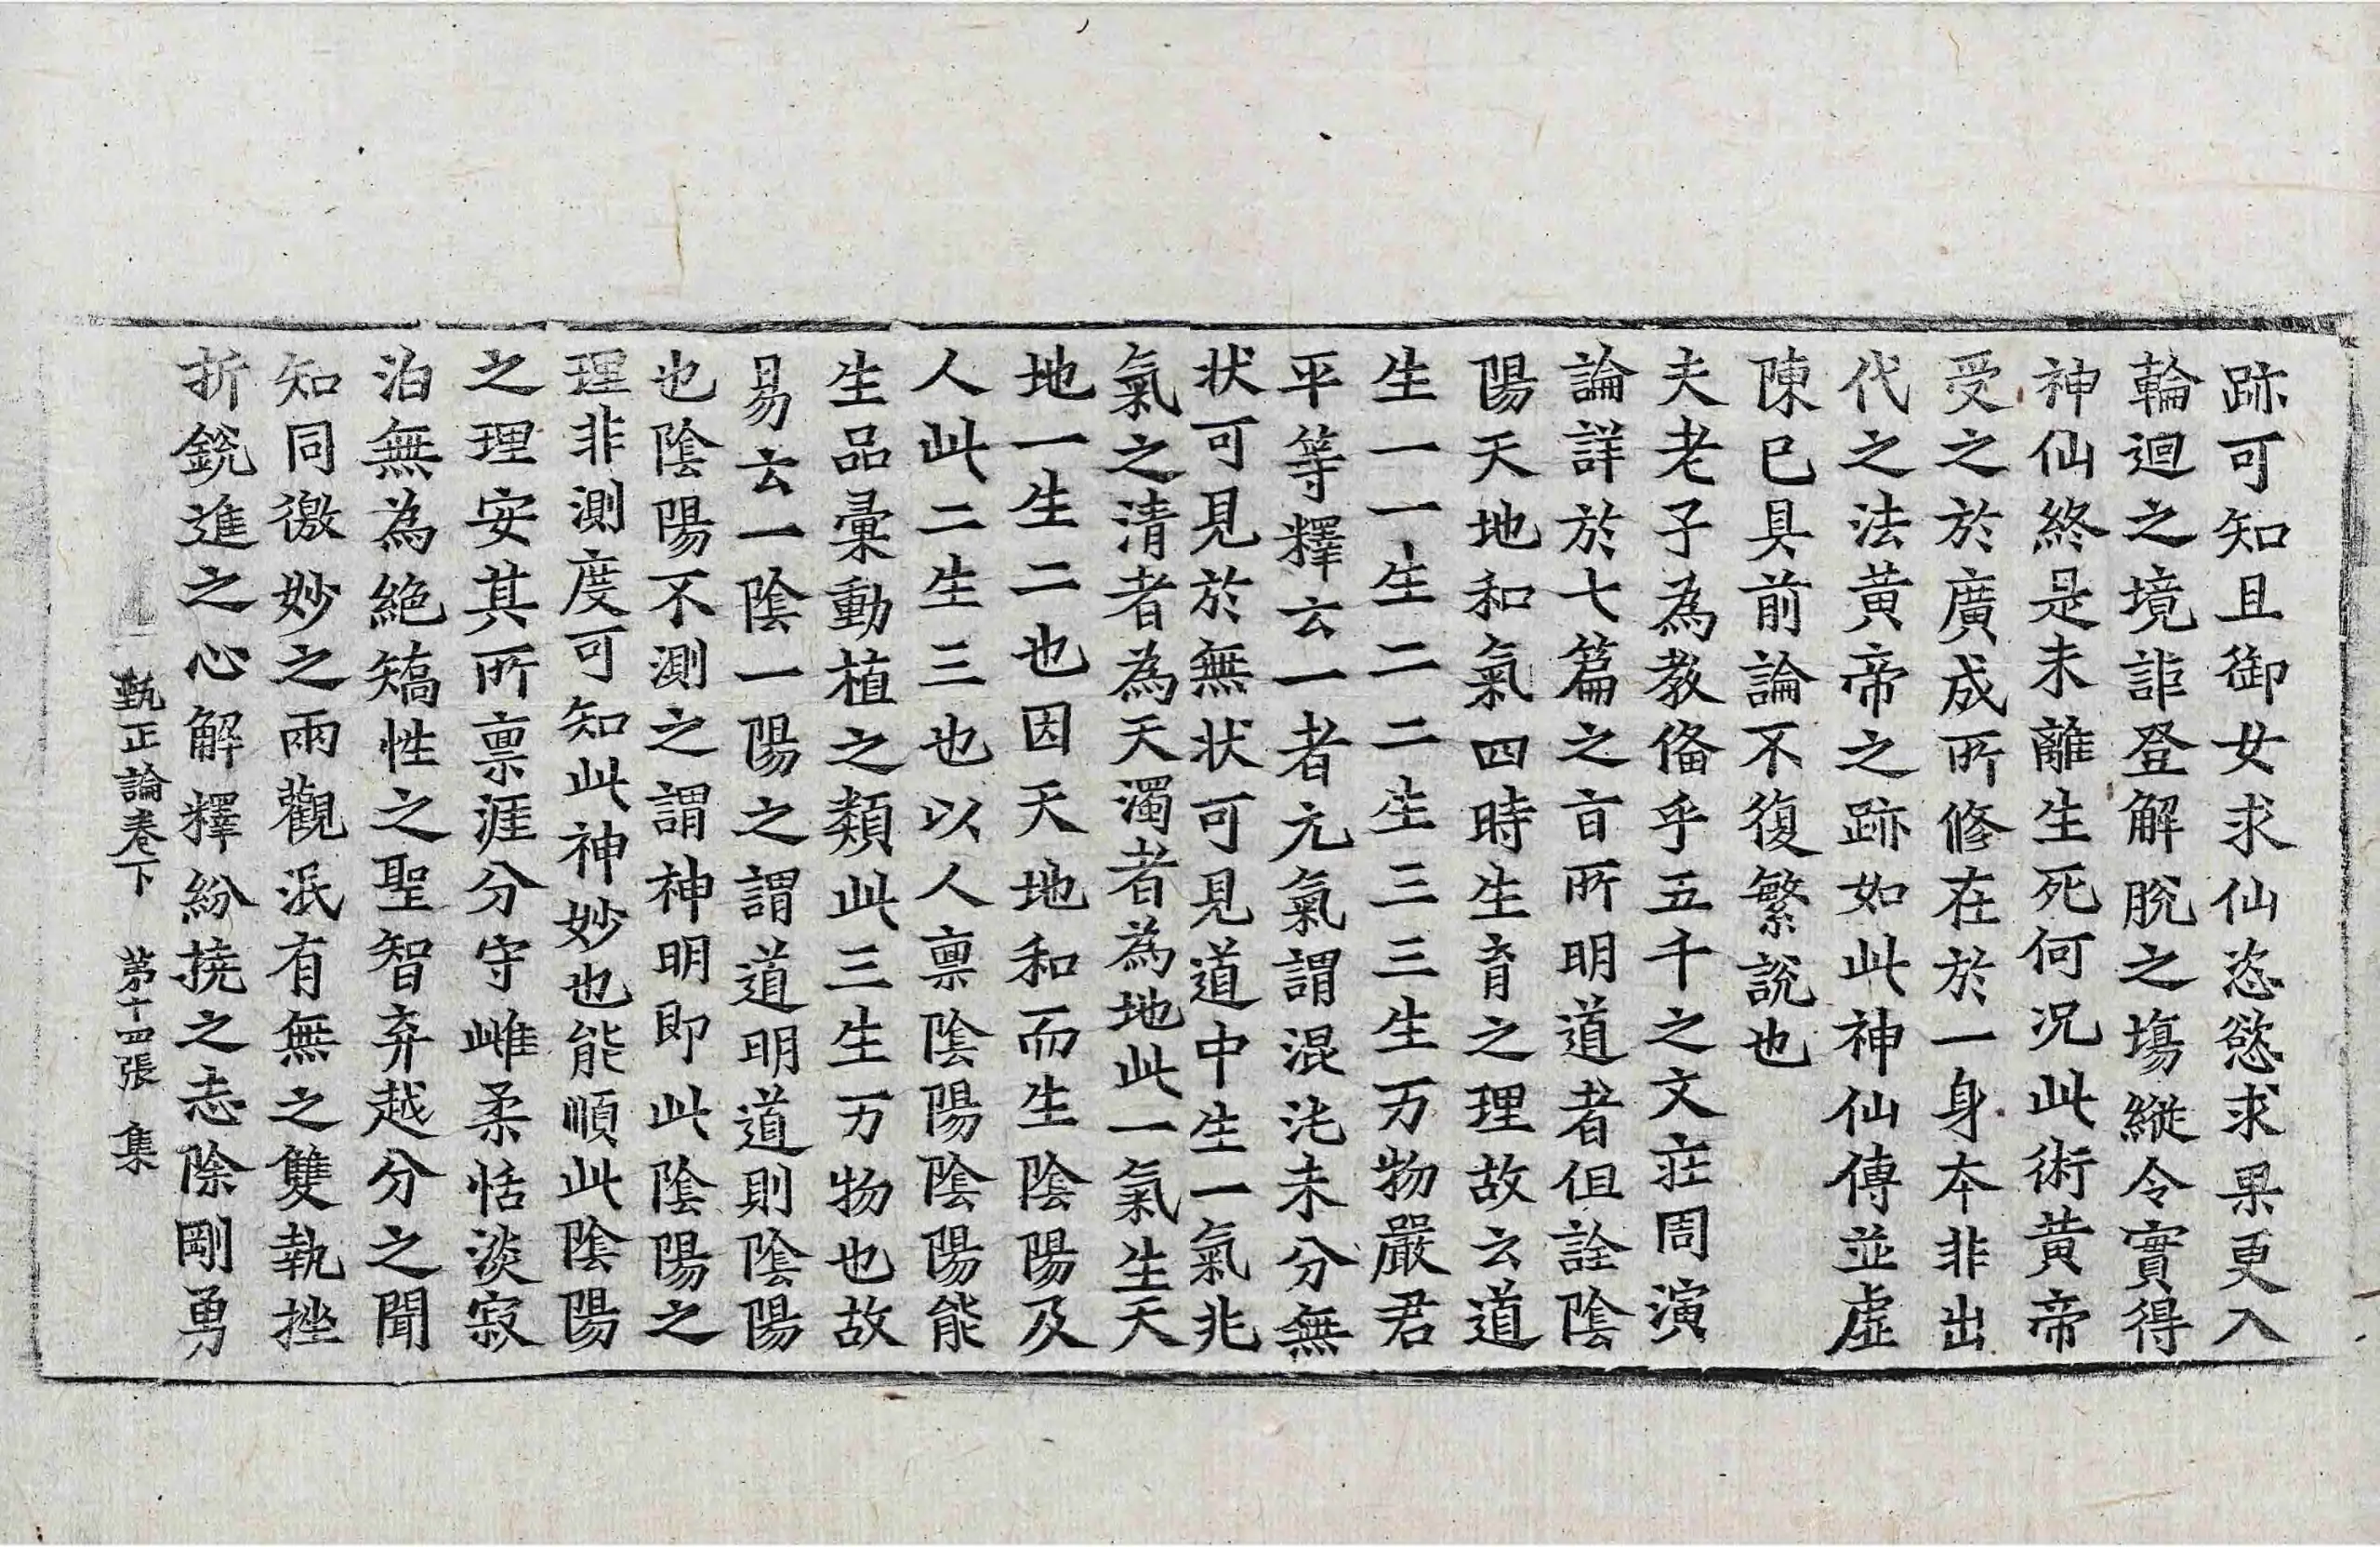 跡可知且御女求仙恣慾求果更入
輪迴之境詎登解脫之塲縱令實得
神仙終是未離生死何况此術黄帝
受之於廣成所修在於一身夲非出
代之法黄帝之跡如此神仙傳並虛
陳已具前論不復繁說也
夫老子為教俻乎五千之文莊周演
論詳於七篇之㫖所明道者但詮陰
陽天地和氣四時生育之理故云道
生一一生二二生三三生万物嚴君
平等釋云一者元氣謂混沌未分無
状可見於無状可見道中生一氣兆
氣之清者為天濁者為地此一氣生天
地一生二也因天地和而生陰陽及
人此二生三也以人禀陰陽陰陽能
生品彙動植之類此三生万物也故
易云一陰一陽之謂道明道則陰陽
也陰陽不測之謂神明即此陰陽之
理非測度可知此神妙也能順此陰陽
之理安其所禀涯分守雌柔恬淡寂
泊無為絶矯性之聖智弃越分之聞
知同徼妙之兩觀泯有無之雙執挫
折銳進之心解釋紛撓之志除剛勇
甄正論卷下 第十四張 集